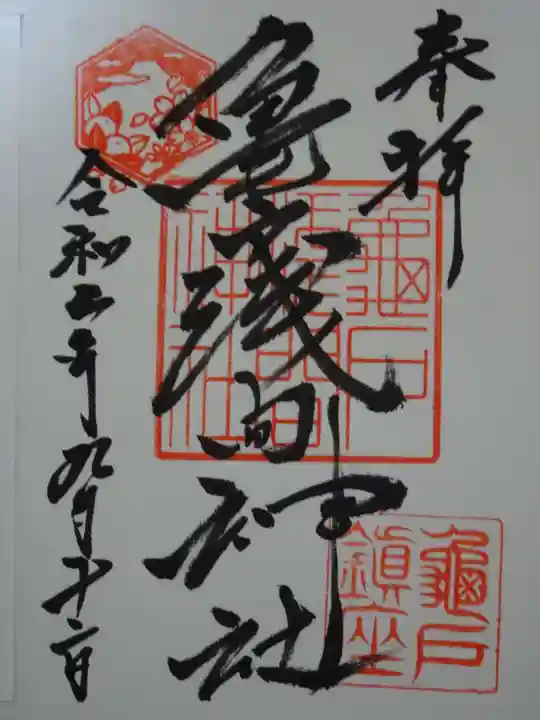 奉拝
龜戸淺間神社
亀戸浅間神社
龜戸
鎮座
令和二年九月十二日